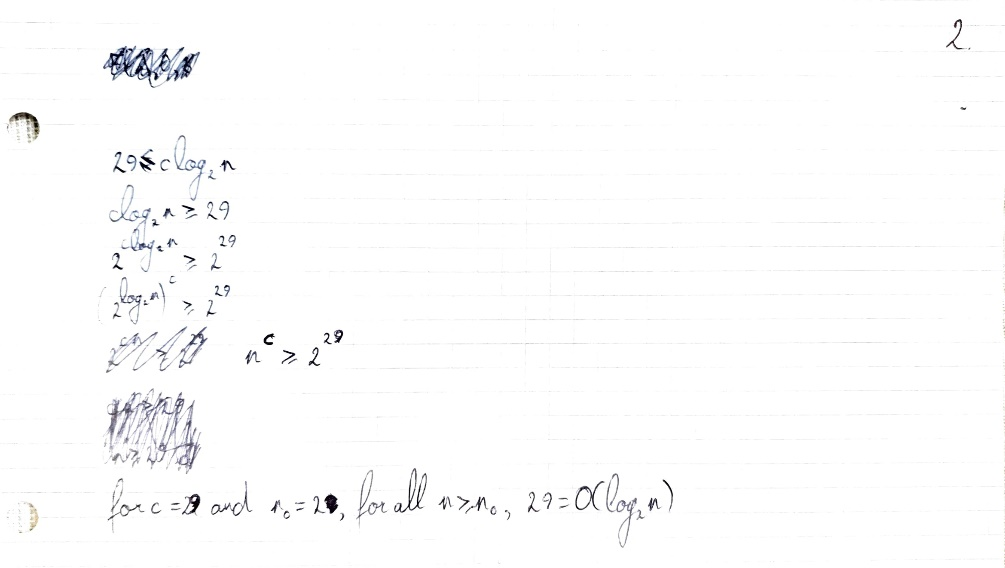 2.
29 ≤ c log₂ n
c log₂ n ≥ 29
2^(c log₂ n) ≥ 2^29
(2^(log₂ n))^c ≥ 2^29
n^c ≥ 2^29
for c = 29 and n₀ = 2, for all n ≥ n₀, 29 = O(log₂ n)